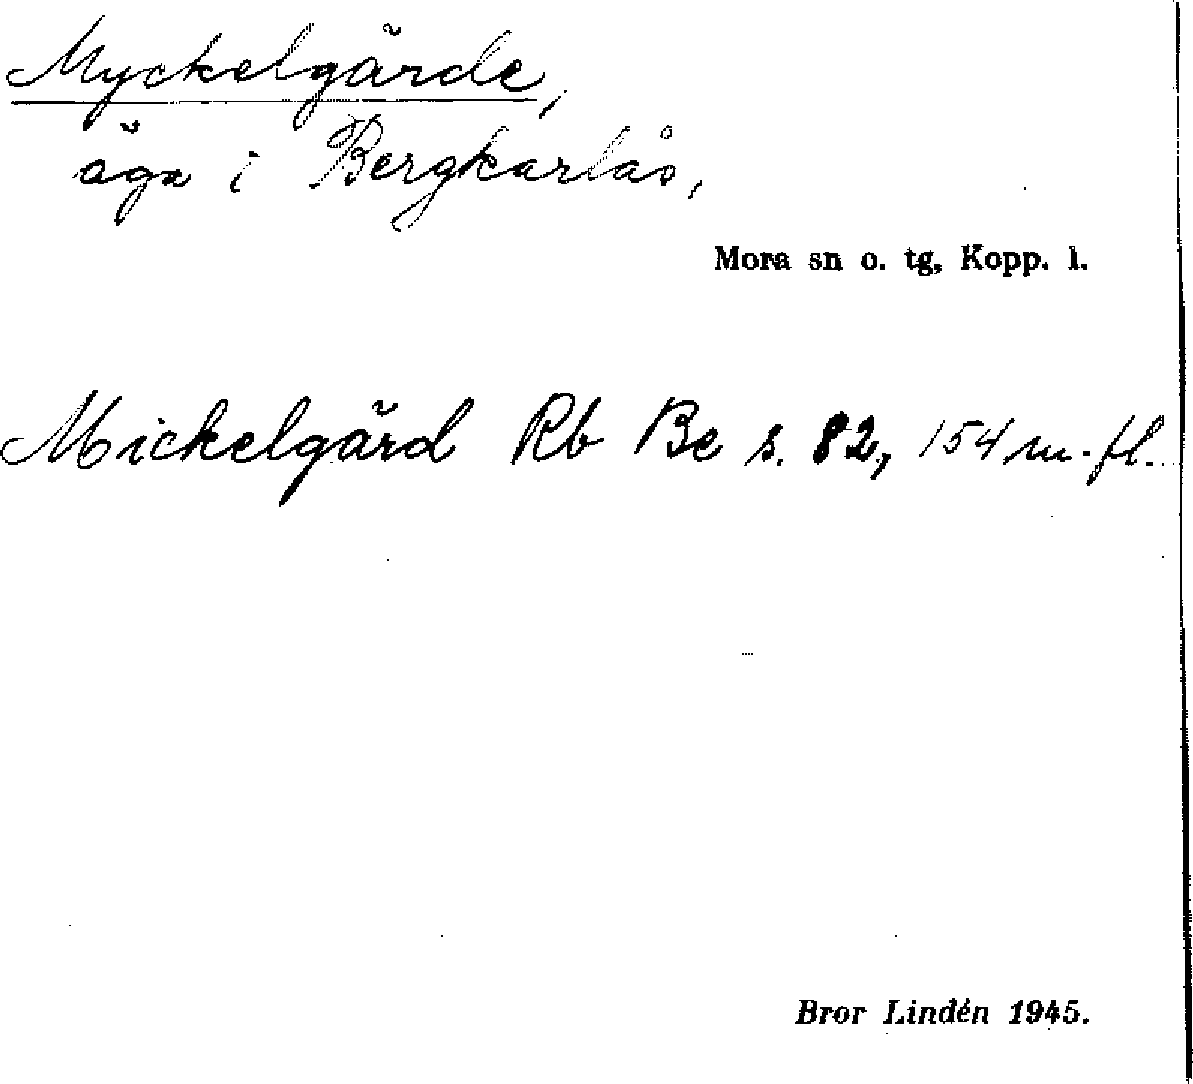 Myckelgärde,
äga i Bergkarlås,
Mora sn o. tg, Kopp. l.
Mickelgärd Rb Be s. 82, 154 m. fl.
Bror Lindén 1945.